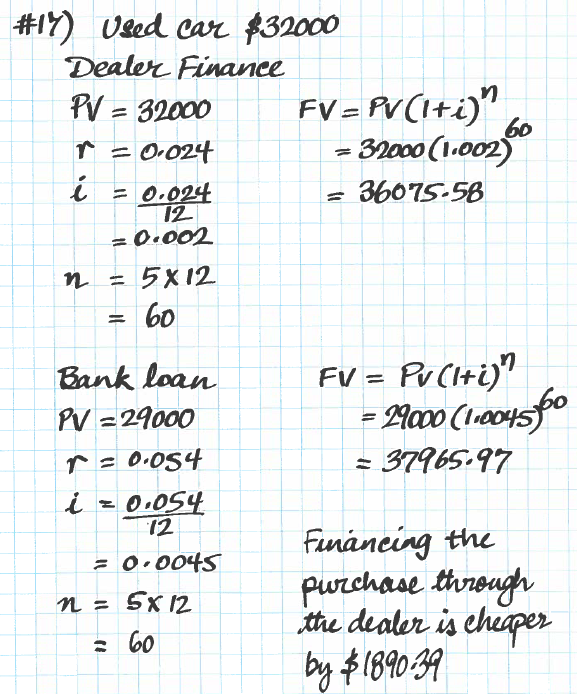 #17) Used car $32000
Dealer Finance
PV = 32000
r = 0.024
i = 0.024
12
= 0.002
n = 5 x 12
= 60
FV = PV(1+i)^n
= 32000(1.002)^60
= 36075.58
Bank loan
PV = 29000
r = 0.054
i = 0.054
12
= 0.0045
n = 5x12
= 60
FV = PV(1+i)^n
= 29000(1.0045)^60
= 37965.97
Financing the
purchase through
the dealer is cheaper
by $1890.39